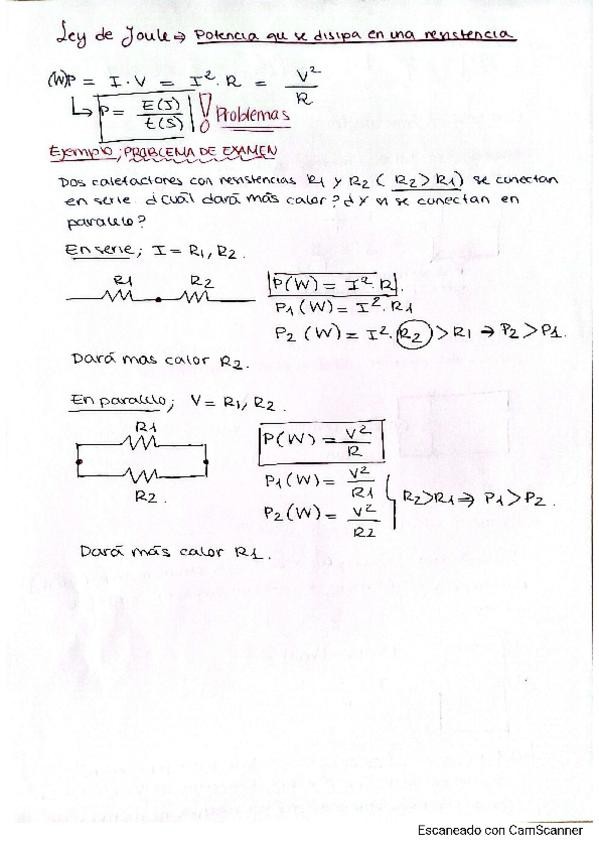 Ley de Joule → Potencia que se disipa en una resistencia
(W)P = I · V = I² · R = V²/R
↳ P = E(J)/t(S) ! Problemas
Ejemplo; PROBLEMA DE EXAMEN
Dos calefactores con resistencias R1 y R2 (R2>R1) se conectan
en serie ¿Cuál dará más calor? ¿Y si se conectan en
paralelo?
En serie; I = R1, R2.
R1 R2
P(W) = I² R.
P1(W) = I². R1
P2 (W) = I². R2 > R1 ⇒ P2 > P1.
Dará mas calor R2.
En paralelo; V = R1, R2.
R1
R2.
P(W) = V²/R
P1(W) = V²/R1
P2(W) = V²/R2
R2>R1 ⇒ P1>P2.
Dará más calor R1.
Escaneado con CamScanner